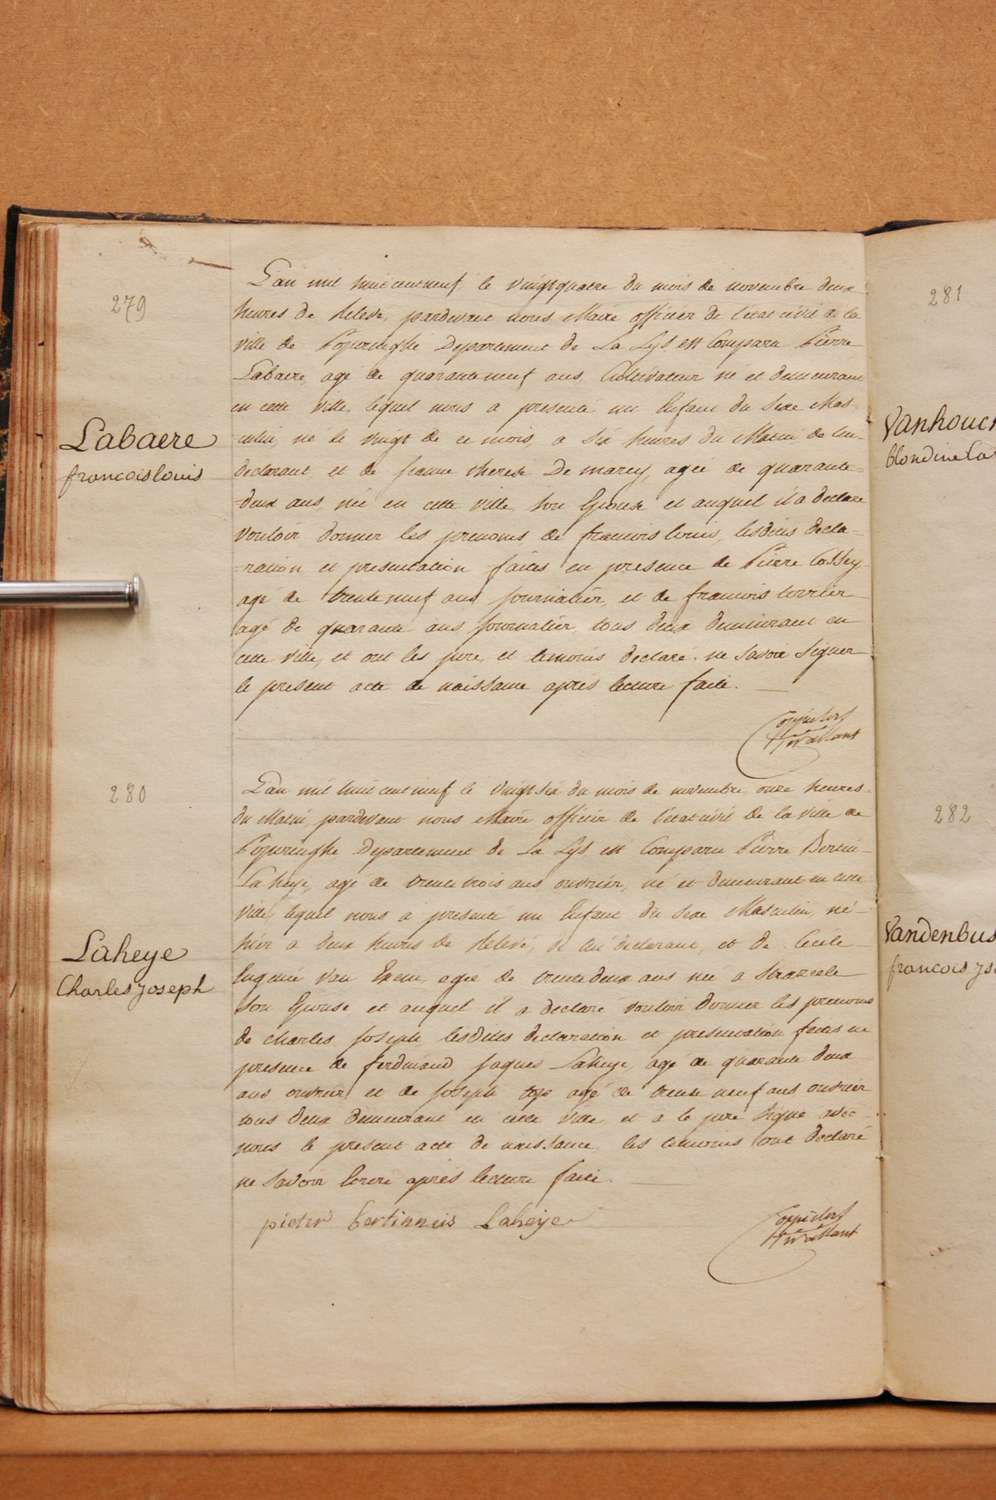 279
L'an mil huit cent neuf le vingtquatre du mois de novembre deux
heures de Relevé, pardevant nous Maire officier de l'état civil de la
ville de Poperinghe Departement de La Lys est Comparu Pierre
Labaere agé de quarante neuf ans Cultivateur né et demeurant
en cette ville, lequel nous a presenté un Enfant du Sexe Mas-
culin, né le vingt de ce mois a Six heures du Matin de lui
declarant et de jeanne therese De marcy, agée de quarante-
-deux ans, née en cette ville son Epouse et auquel il a declaré
Vouloir donner les prenoms de francois louis, lesdites decla-
-ration et presentation faites en presence de Pierre
agé de trente neuf ans journalier, et de francois
agé de quarante ans Journalier, tous deux demeurant en
cette Ville, et ont les pere, et temoins declaré ne Savoir Signer
le present acte de naissance après lecture faite.
Labaere
francois louis
280
L'an mil huit cent neuf le vingtsix du mois de novembre onze heures
du Matin, pardevant nous Maire officier de l'état civil de la Ville de
Poperinghe Departement de La Lys est Comparu Pierre Bertin
Laheye, agé de trente trois ans ouvrier, né et demeurant en cette
Ville, lequel nous a presenté un Enfant du Sexe Masculin, né
hier a deux heures de Relevé, de lui declarant, et de Cecile
Eugenie Van agée de trente deux ans née a
Son Epouse et auquel il a declaré vouloir donner les prenoms
de Charles Joseph lesdites declaration et presentation faites en
presence de ferdinand Jaques Laheye, agé de quarante deux
ans ouvrier et de Joseph agé de trente neuf ans ouvrier
tous deux demeurant en cette Ville et a le pere Signé avec
nous le present acte de naissance les temoins ont declaré
ne savoir Ecrire après lecture faite.
pieter bertinnus Laheye
Laheye
Charles Joseph
281
282